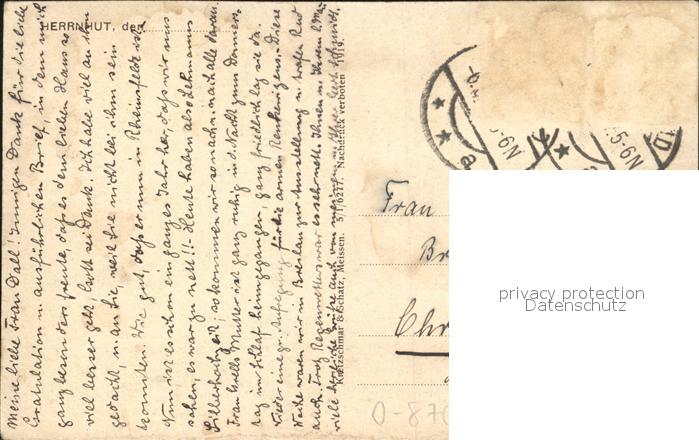 HERRNHUT, den
Meine liebe Frau Dall! Innigen Dank für die liebe
Gratulation u. ausführlichen Brief, in dem mich
ganz besonders freute, daß es dem lieben Hans so
viel besser geht, Gott sei Dank. Ich habe viel an ihn
gedacht, u. an Sie, weil Sie nicht bei ihm sein
konnten. Wie gut, daß er nun in Rheinsfelde ist.
Nun ist es schon ein ganzes Jahr her, daß wir uns
sahen, es war zu nett!! - Heute haben also Lehmanns
so kommen wir so nach u. nach alle daran.
Frau Mutter ist ganz ruhig in d. Nacht zum Donners-
tag im Schlaf heimgegangen, ganz friedlich lag sie da.
Wieder eine gr. Aufregung für die armen Diese
Woche waren wir in Breslau zur Ausstellung u. trafen Rud
auch. Trotz Regenwetters war es sehr nett. Ihnen u. Ihrem l. Mann
viele herzliche Grüße auch von meinem
Kretzschmar & Schatz, Meissen. 511/6217. Nachdruck verboten 1919.
5-6N
.5-6N
Frau
Br
Chr
0-870
privacy protection
Datenschutz